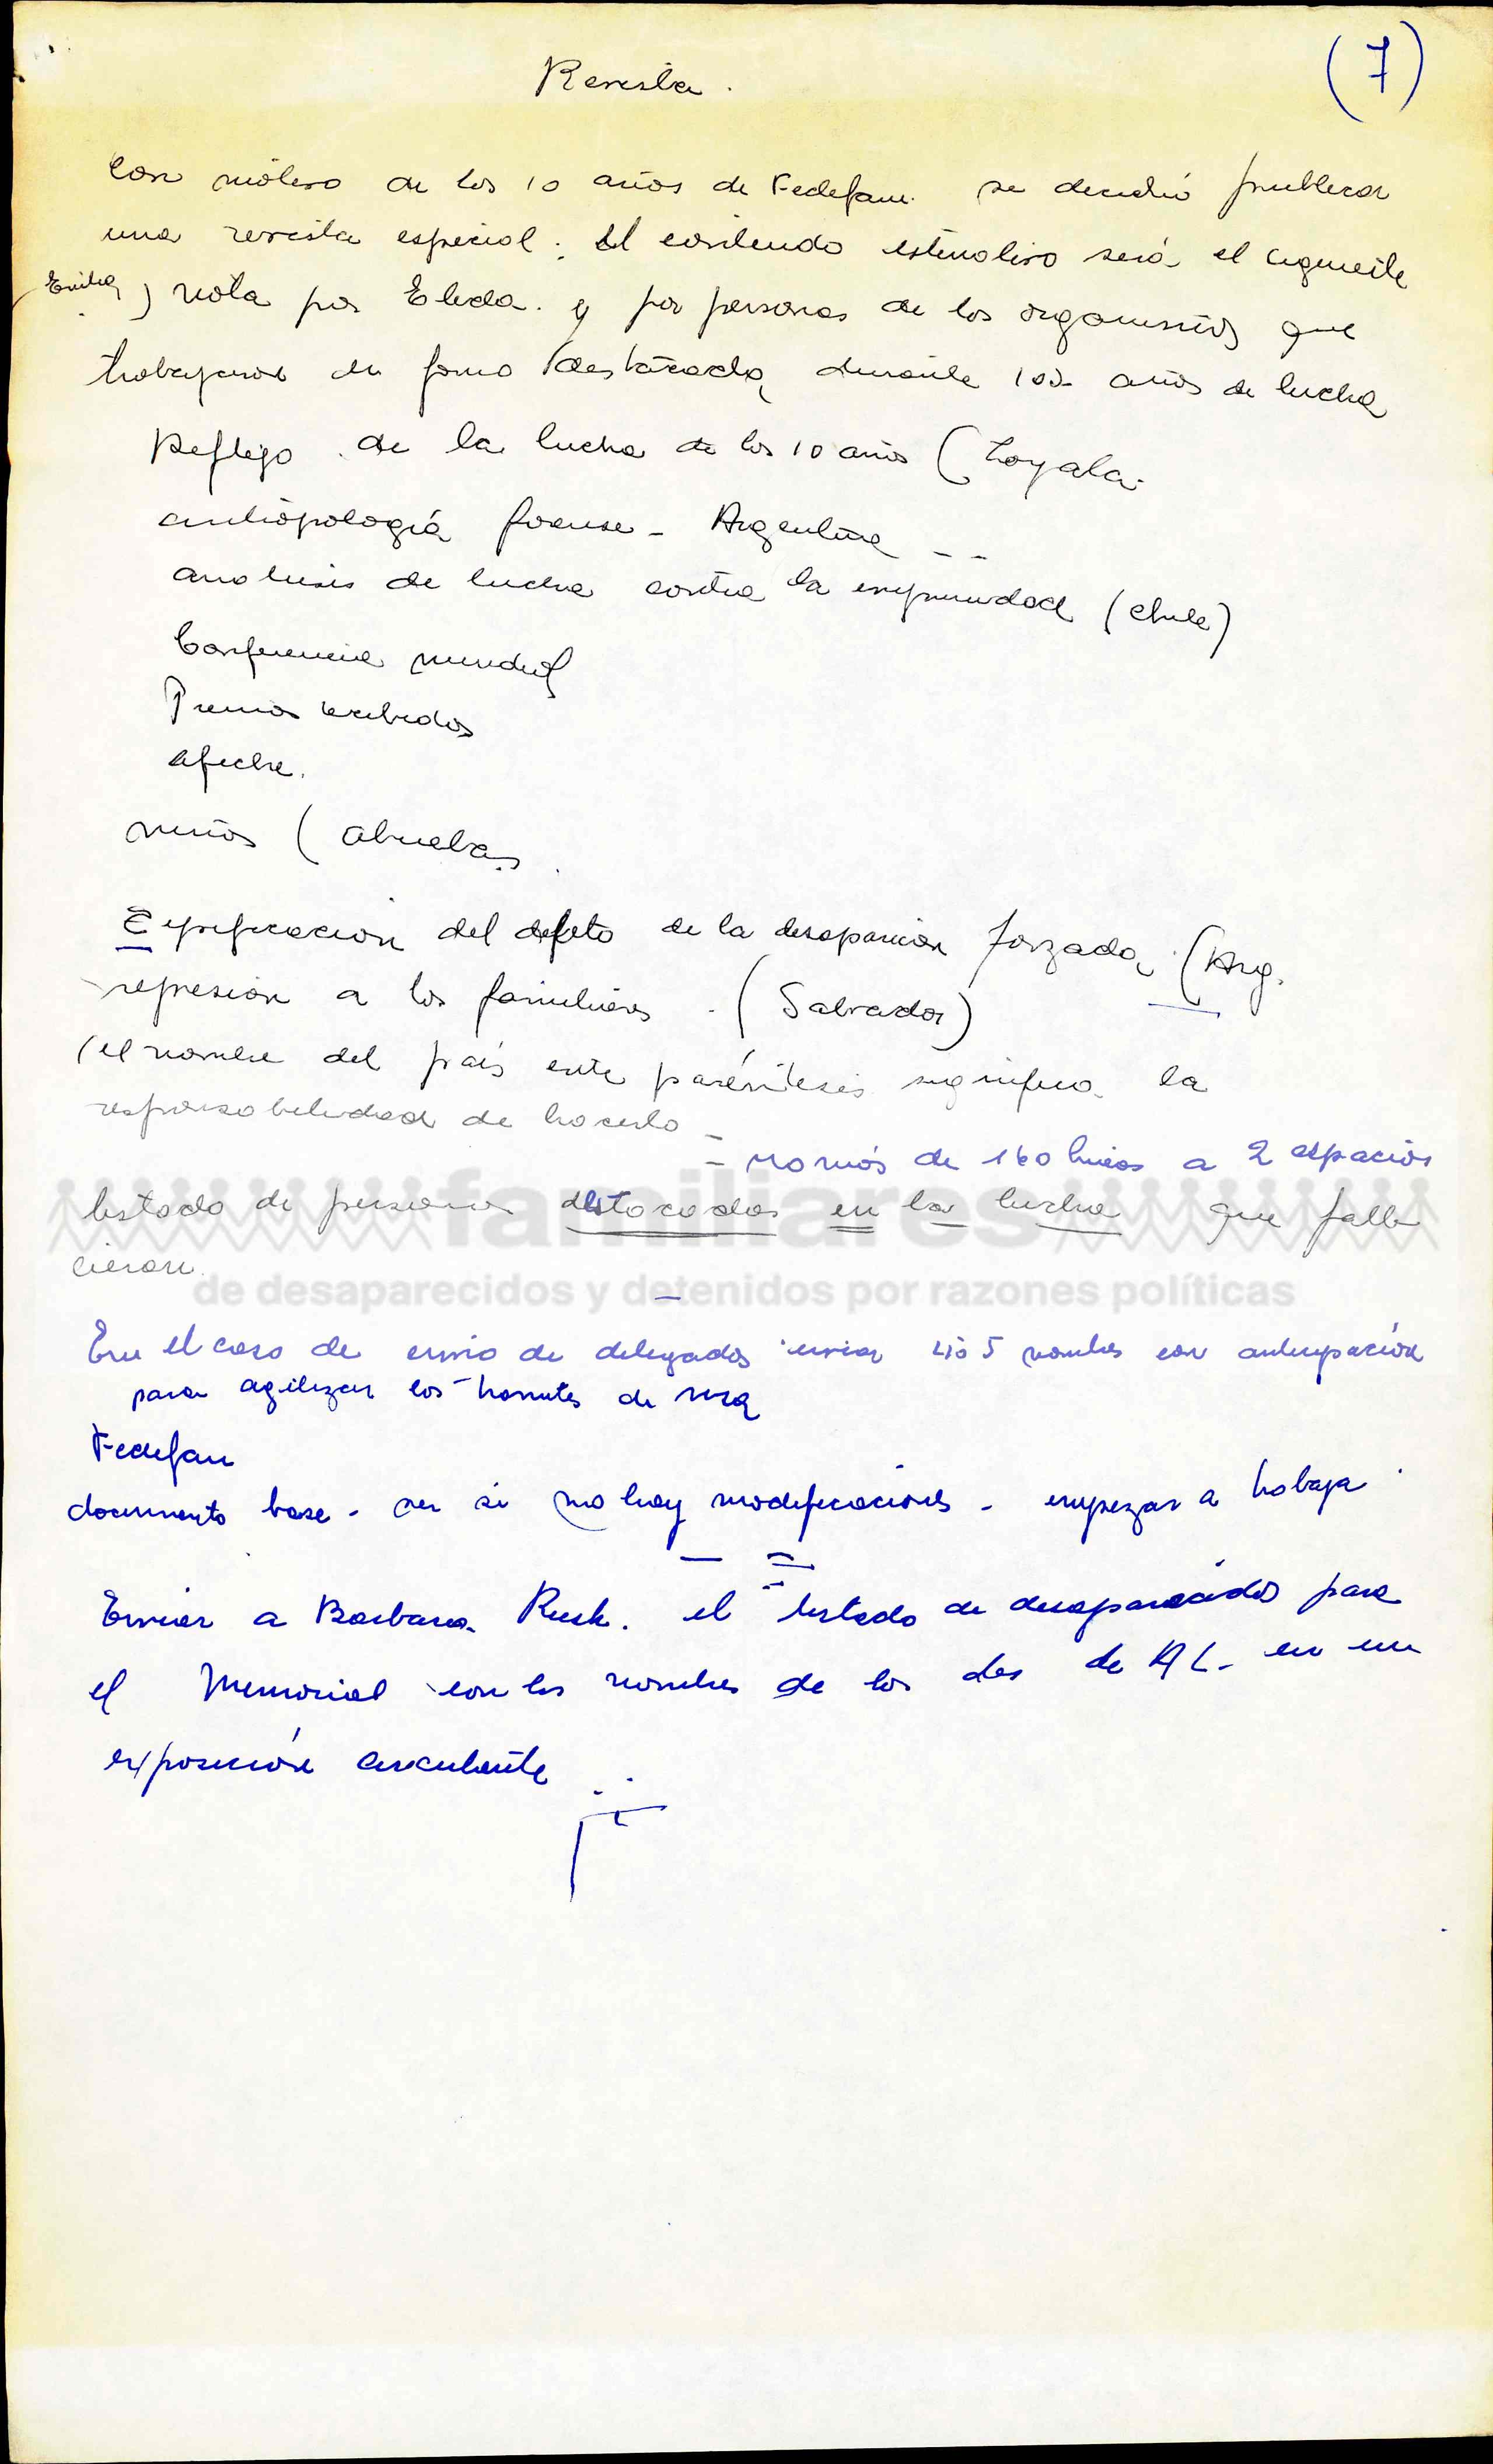 (7)
Revista.
Con motivo de los 10 años de Fedefam. se decidió publicar
una revista especial. El contenido estimativo será el siguiente
nota por Eleda. y por personas de los organismos que
trabajaron en forma destacada, durante 10 años de lucha
Reflejo de la lucha de los 10 años (Loyala.
antropología forense - Argentina --
analisis de lucha contra la impunidad (Chile)
Conferencia mundial
Premios recibidos
afiche.
niños (abuelas
Tipificación del delito de la desaparición forzada, (Arg.
represión a los familiares. (Salvador)
(el nombre del país entre paréntesis significa la
responsabilidad de hacerlo -
- no más de 160 lineas a 2 espacios
listado de personas destacadas en la lucha que falle
cieron.
familiares
de desaparecidos y detenidos por razones políticas
En el caso de envio de delegados enviar 4 ó 5 nombres con anticipación
para agilizar los tramites de visa
Fedefam
documento base - ver si no hay modificaciones - empezar a trabajar
Enviar a Barbara Rusk. el listado de desaparecidos para
el Memorial con los nombres de los des de AL - en una
exposición circulante